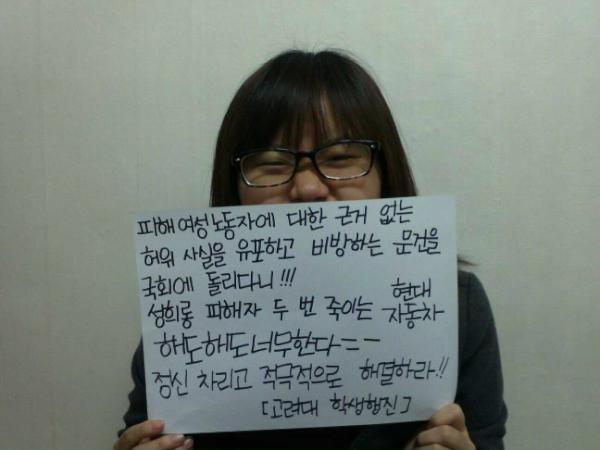 피해여성노동자에 대한 근거 없는
허위 사실을 유포하고 비방하는 문건을
국회에 돌리다니!!!
성희롱 피해자 두 번 죽이는 현대
자동차
해도해도너무한다==
정신 차리고 적극적으로 해결하라!!
[고려대 학생행진]